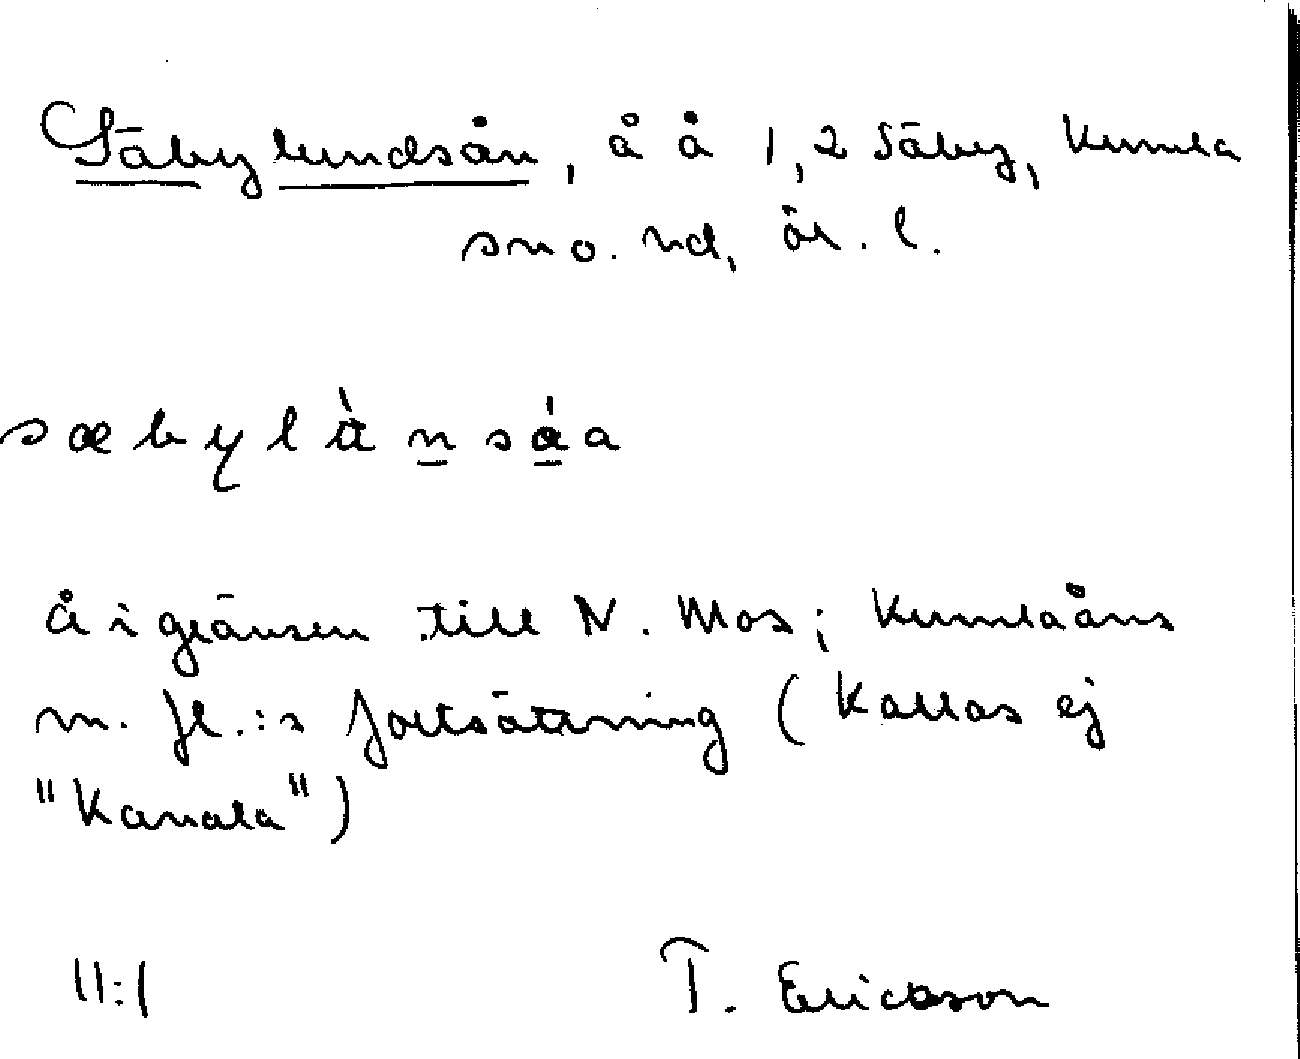 Säbylundsån, å å 1, 2 Säby, Kumla
sn o. hd, ör. l.
sæbylằnsåa
Å i gränsen till N. Mos; Kumlaåns
m. fl.:s fortsättning (Kallas ej
"Kanala")
11:1 T. Ericsson